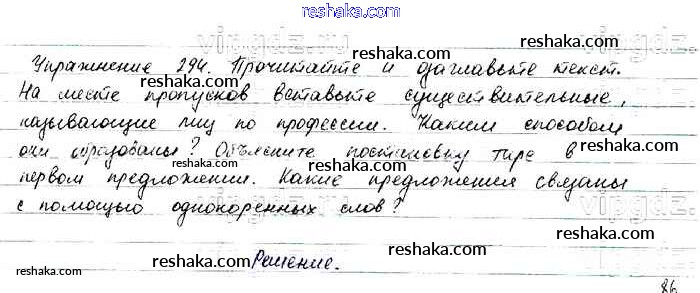 reshaka.com
Упражнение 294. Прочитайте и озаглавьте текст.
На месте пропусков вставьте существительные,
называющие лиц по профессии. Каким способом
они образованы? Объясните постановку тире в
первом предложении. Какие предложения связаны
с помощью однокоренных слов?
Решение.
86
vipgdz.ru
reshaka.com
reshaka.com
reshaka.com
reshaka.com
reshaka.com
reshaka.com
reshaka.com
reshaka.com
reshaka.com
reshaka.com